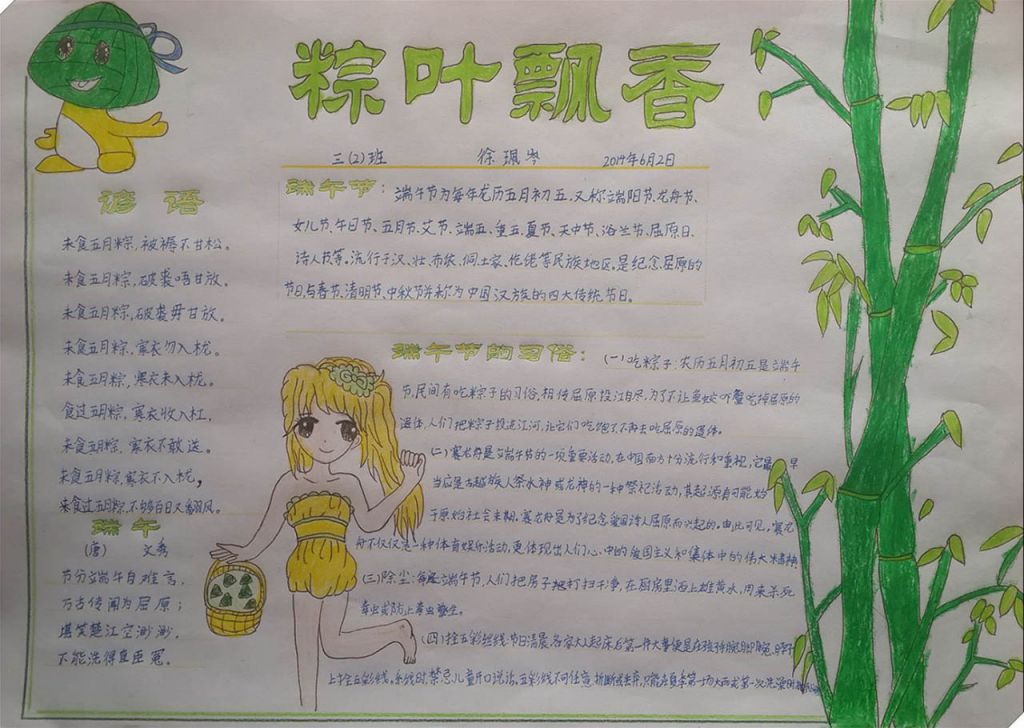 粽叶飘香
三(2)班 徐珮岑 2014年6月2日
谚语
未食五月粽,被褥不甘松。
未食五月粽,破裘唔甘放。
未食五月粽,破裘毋甘放。
未食五月粽,寒衣勿入栊。
未食五月粽,寒衣未入栊。
食过五月粽,寒衣收入杠,
未食五月粽,寒衣不敢送。
未食五月粽,寒衣不入栊,
未食过五月粽,不够百日又翻风。
端午
(唐) 文秀
节分端午自难言,
万古传闻为屈原;
堪笑楚江空渺渺,
不能洗得直臣冤。
端午节:端午节为每年农历五月初五,又称端阳节、龙舟节、
女儿节、午日节、五月节、艾节、端五、重五、夏节、天中节、浴兰节、屈原日、
诗人节等。流行于汉、壮、布依、侗、土家、仡佬等民族地区。是纪念屈原的
节日,与春节、清明节、中秋节并称为中国汉族的四大传统节日。
端午节的习俗:(一)吃粽子:农历五月初五是端午
节,民间有吃粽子的习俗,相传屈原投江自尽,为了不让鱼蛟吓蟹吃掉屈原的
遗体,人们把粽子投进江河,让它们吃饱了不再去吃屈原的遗体。
(二)赛龙舟是端午节的一项重要活动,在中国南方十分流行和重视,它最早
当应是古越族人祭水神或龙神的一种祭祀活动,其起源有可能始
于原始社会末期。赛龙舟是为了纪念爱国诗人屈原而兴起的。由此可见,赛龙
舟不仅仅是一种体育娱乐活动,更体现出人们心中的爱国主义和集体中的伟大精神
(三)除尘:每逢端午节,人们把房子打扫干净,在厨房里洒上雄黄水,用来杀死
毒虫或防止毒虫孳生。
(四)拴五彩丝线:节日清晨,各家大人起床后第一件大事便是在孩子手腕、脚腕、脖子
上拴五彩线。系线时,禁忌儿童开口说话,五彩线不可任意折断或丢弃,只能在夏季第一场大雨或第一次洗澡时